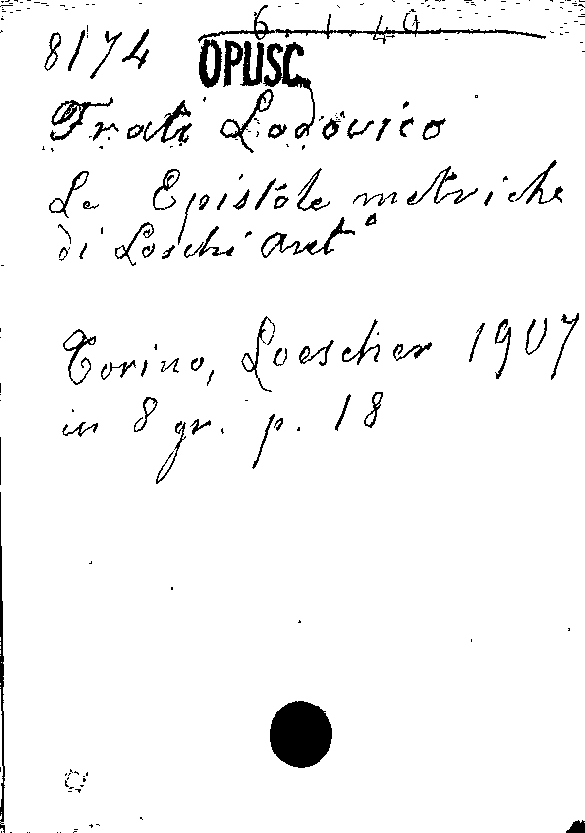 6.1.40
8174 OPUSC.
Frati Lodovico
Le Epistole metriche
di Loschi Antº
Torino, Loescher 1907
in 8 gr. p. 18